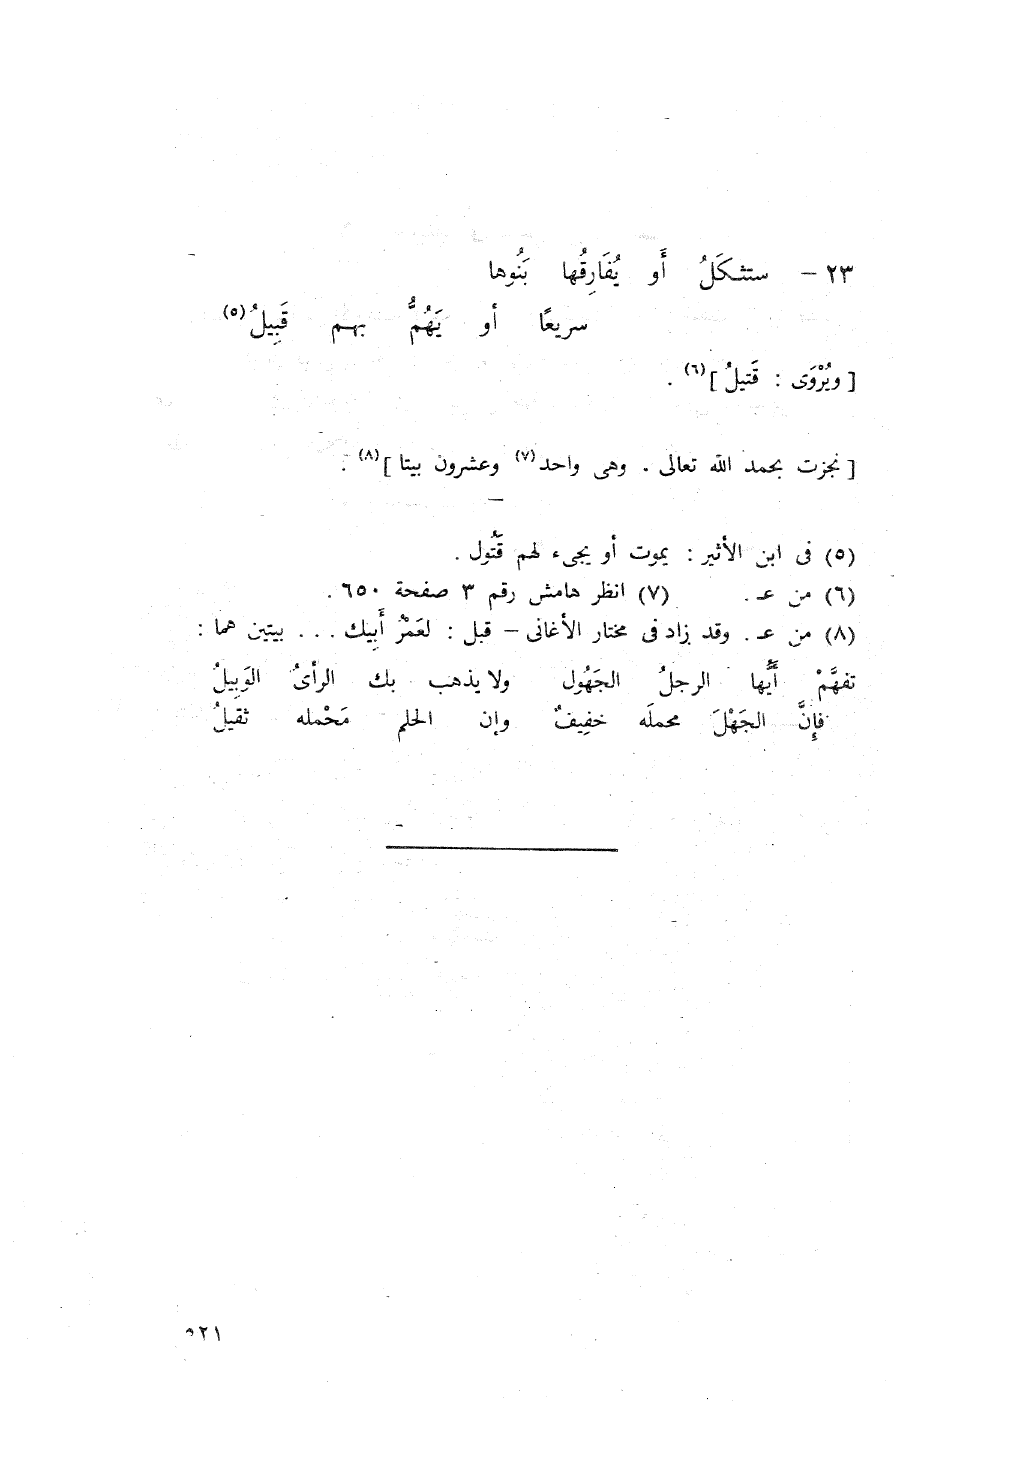 ٢٣ – ستثكَلُ أَو يُفَارِقُها بَنُوها
سريعًا أو يَهُمُّ بهم قَبِيلُ (٥)
[ ويُرْوَى : قَتيلُ ] (٦) .
[ نجزت بحمد الله تعالى . وهى واحد (٧) وعشرون بيتا ] (٨) .
(٥) فى ابن الأثير : يموت أو يجىء لهم قَتُول .
(٦) من عـ . (٧) انظر هامش رقم ٣ صفحة ٦٥٠ .
(٨) من عـ . وقد زاد فى مختار الأغانى – قبل : لعَمْرُ أَبِيك ... بيتين هما :
تفهَّمْ أَيُّها الرجلُ الجَهُول ولا يذهب بك الرأىُ الوَبِيلُ
فإِنَّ الجَهْلَ محملَه خفِيفٌ وإن الحلم مَحْمله ثقيلُ
٥٢١